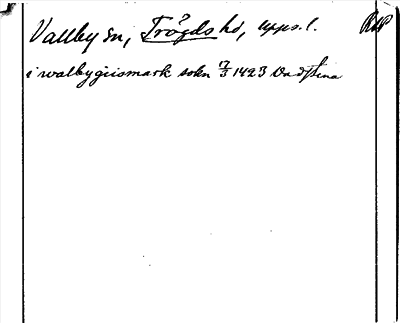 Vallby sn, Trögds hd, Upps. l. RAP
i walbygiismark sokn 7/3 1423 Vadstena